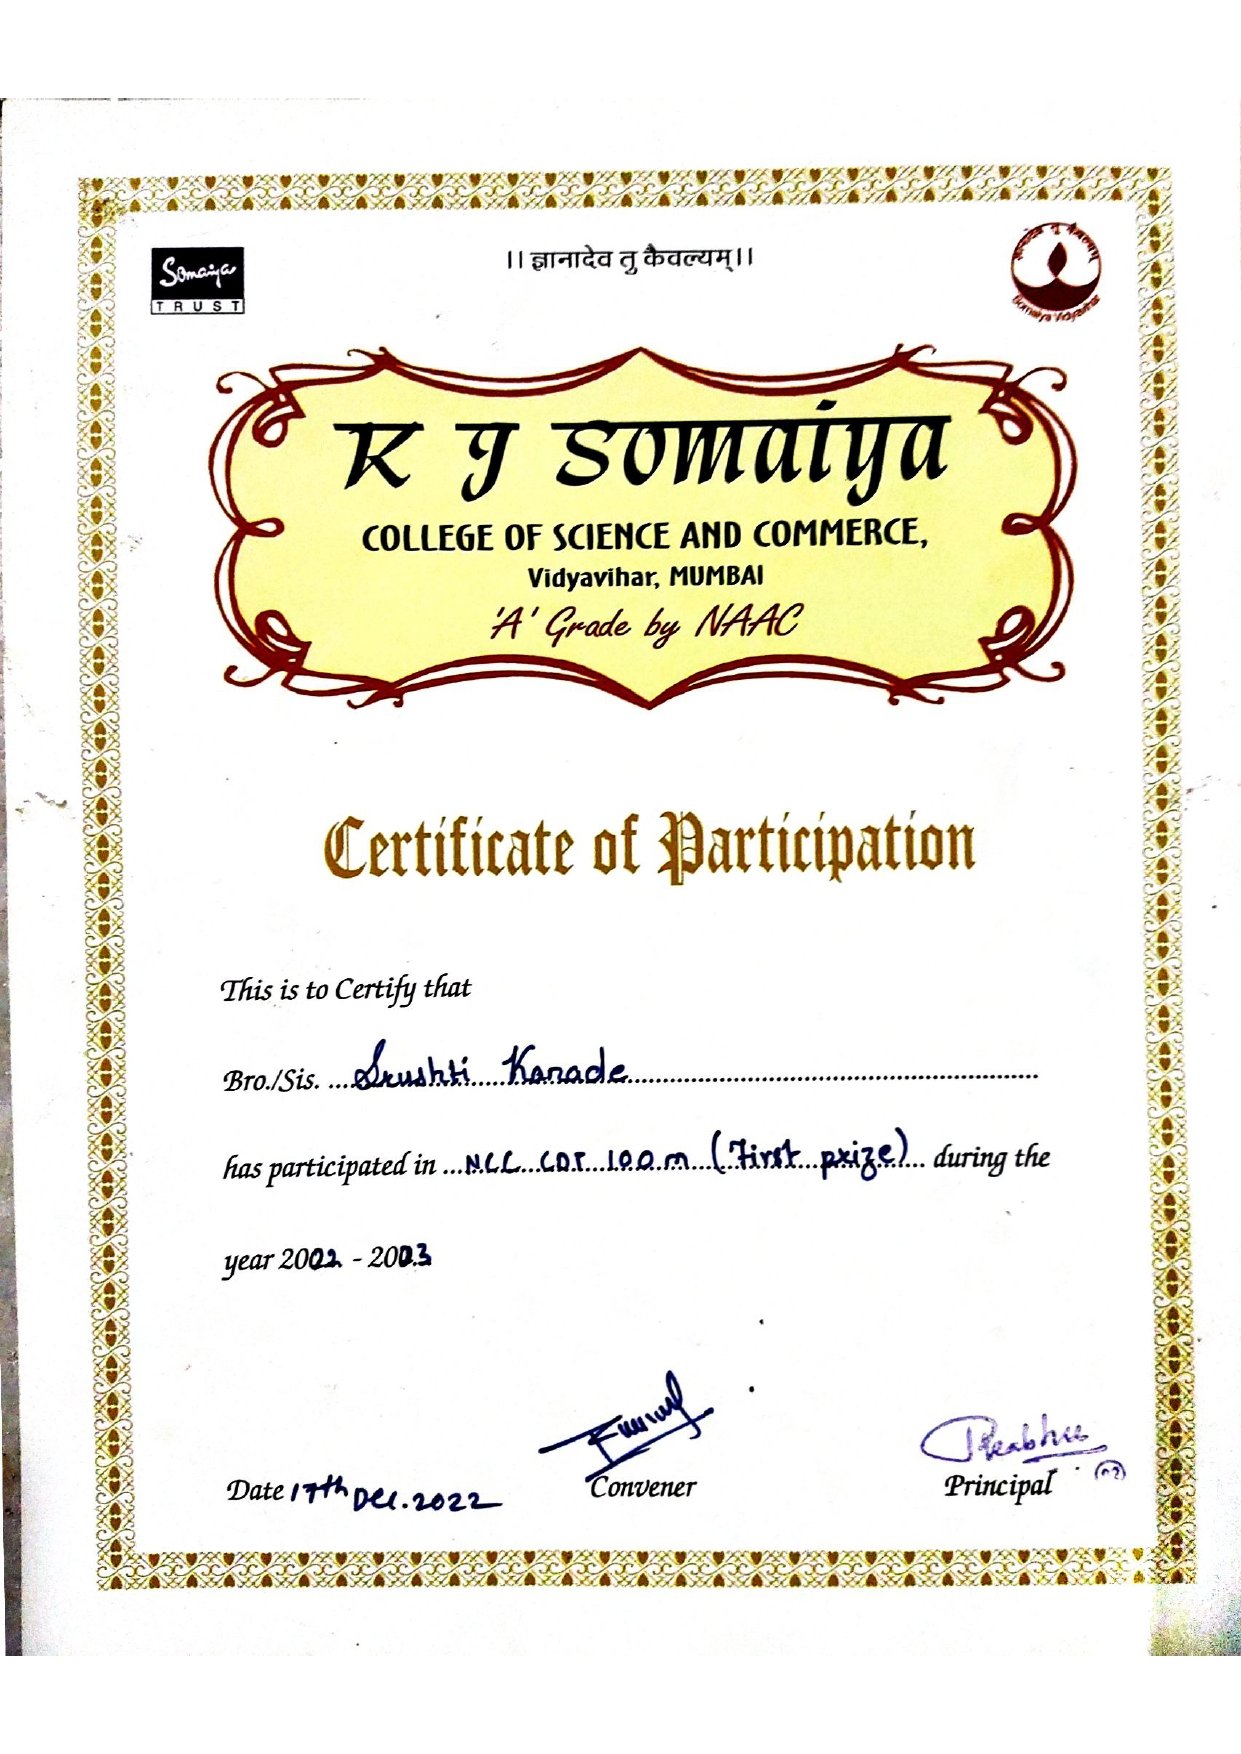 Somaiya
TRUST
।। ज्ञानादेव तु कैवल्यम् ।।
Somaiya Vidyavihar
K J Somaiya
COLLEGE OF SCIENCE AND COMMERCE,
Vidyavihar, MUMBAI
'A' Grade by NAAC
Certificate of Participation
This is to Certify that
Bro./Sis. ....Srushti Karade....
has participated in ...NCC CDT 100 m (First prize)... during the
year 2002 - 2003
Date 17th Dec. 2022
Convener
Prabhu
Principal